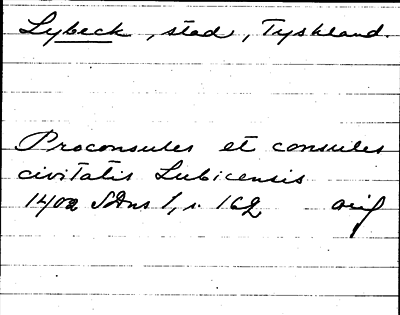 Lybeck, stad, Tyskland.
Proconsules et consules
civitatis Lubicensis
1402 SDns 1, s. 162 orig